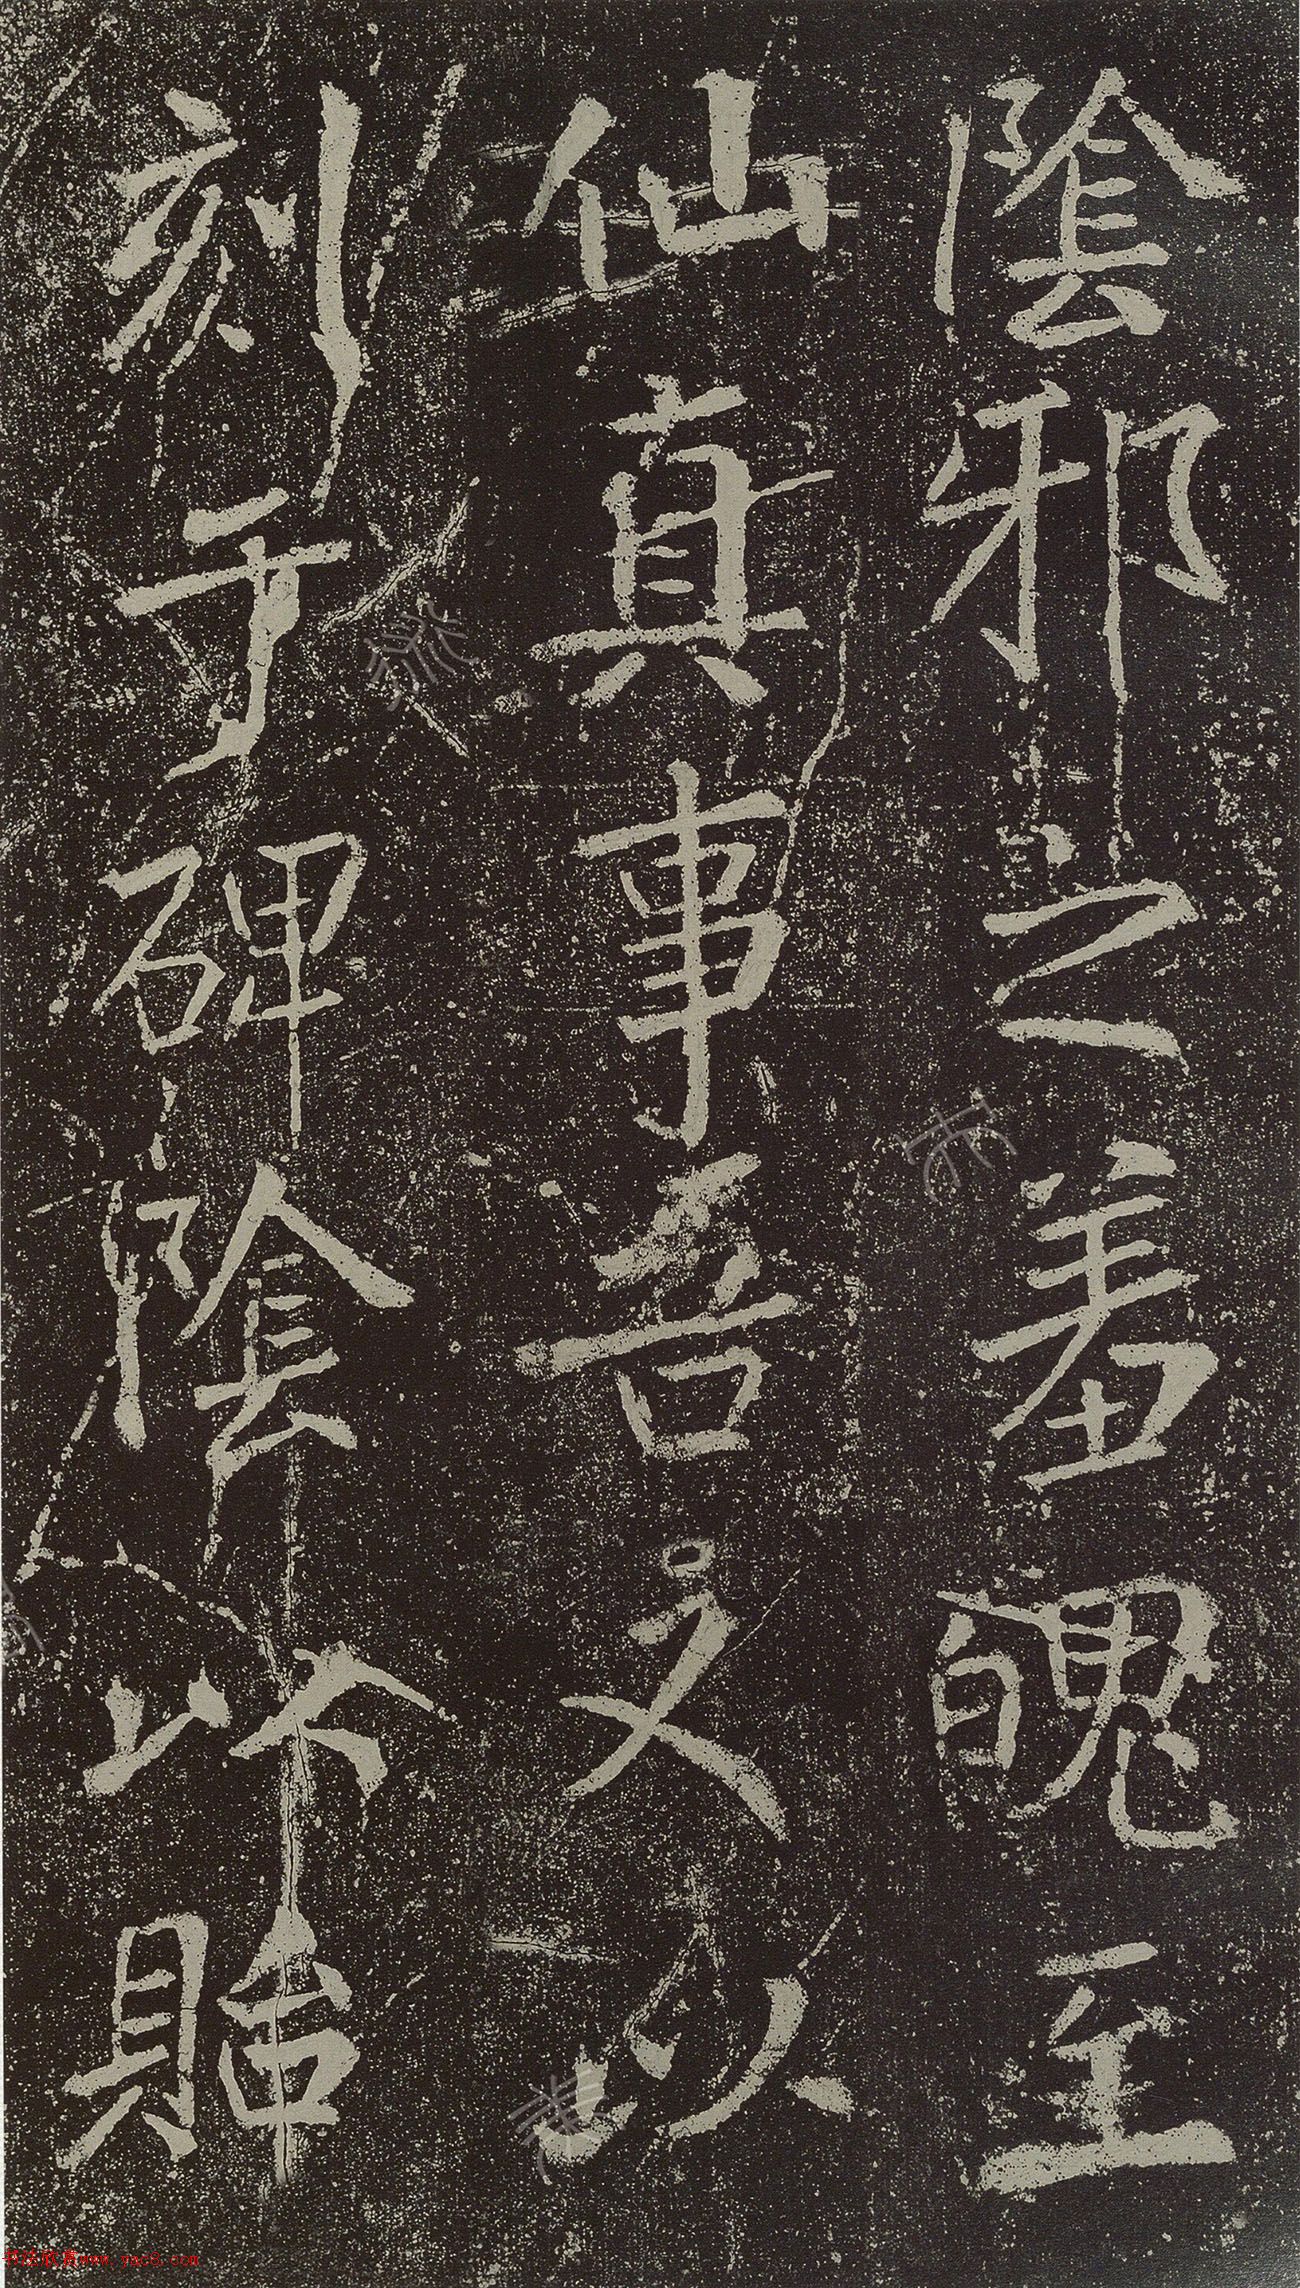 陰邪之羞魄至
仙真事吾又以
刻于碑陰以貽
书法欣赏www.yac8.com